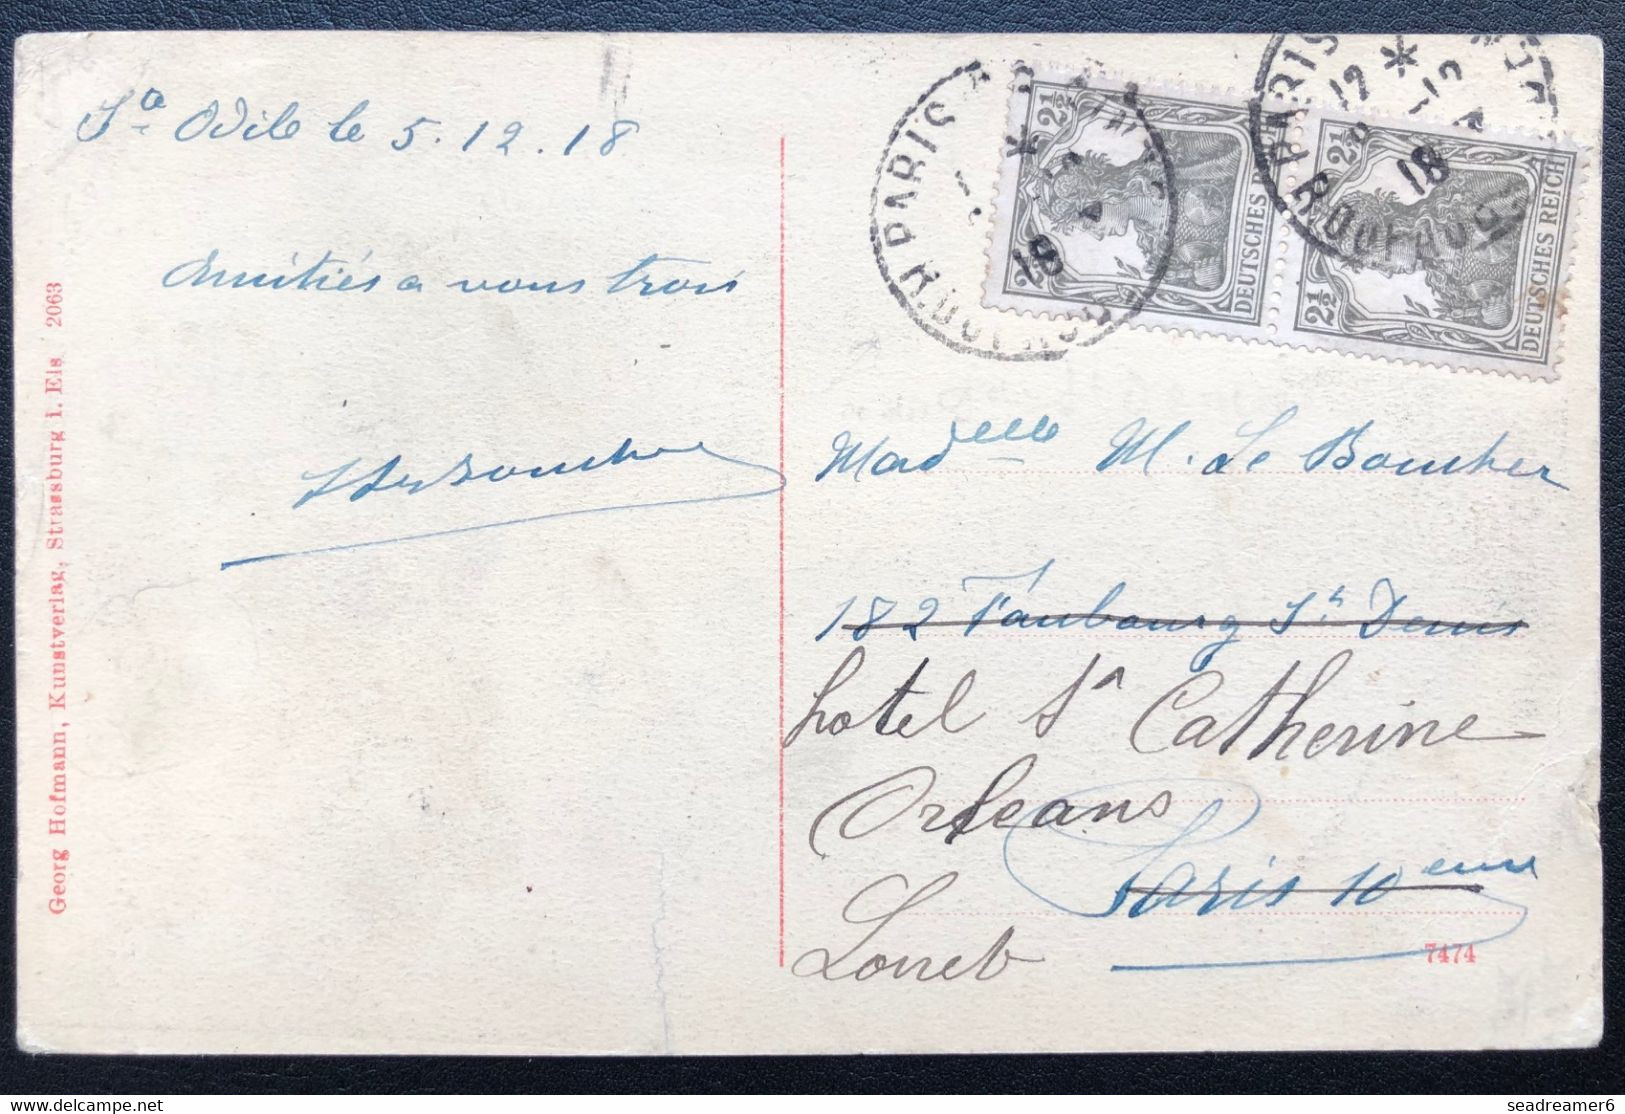 Sᵗᵉ Odile le 5.12.18
Amitiés a vous trois
Georg Hofmann, Kunstverlag, Strassburg i. Els 2063
PARIS
18
2½ DEUTSCHES REICH 2½
PARIS
12
18
2½ DEUTSCHES REICH 2½
Madᵉˡˡᵉ M. Le Boucher
182 Faubourg Sᵗ Denis
hotel Sᵗᵉ Catherine
Orleans
Paris 10ᵉᵐᵉ
Loiret
7474
www.delcampe.net
seadreamer6